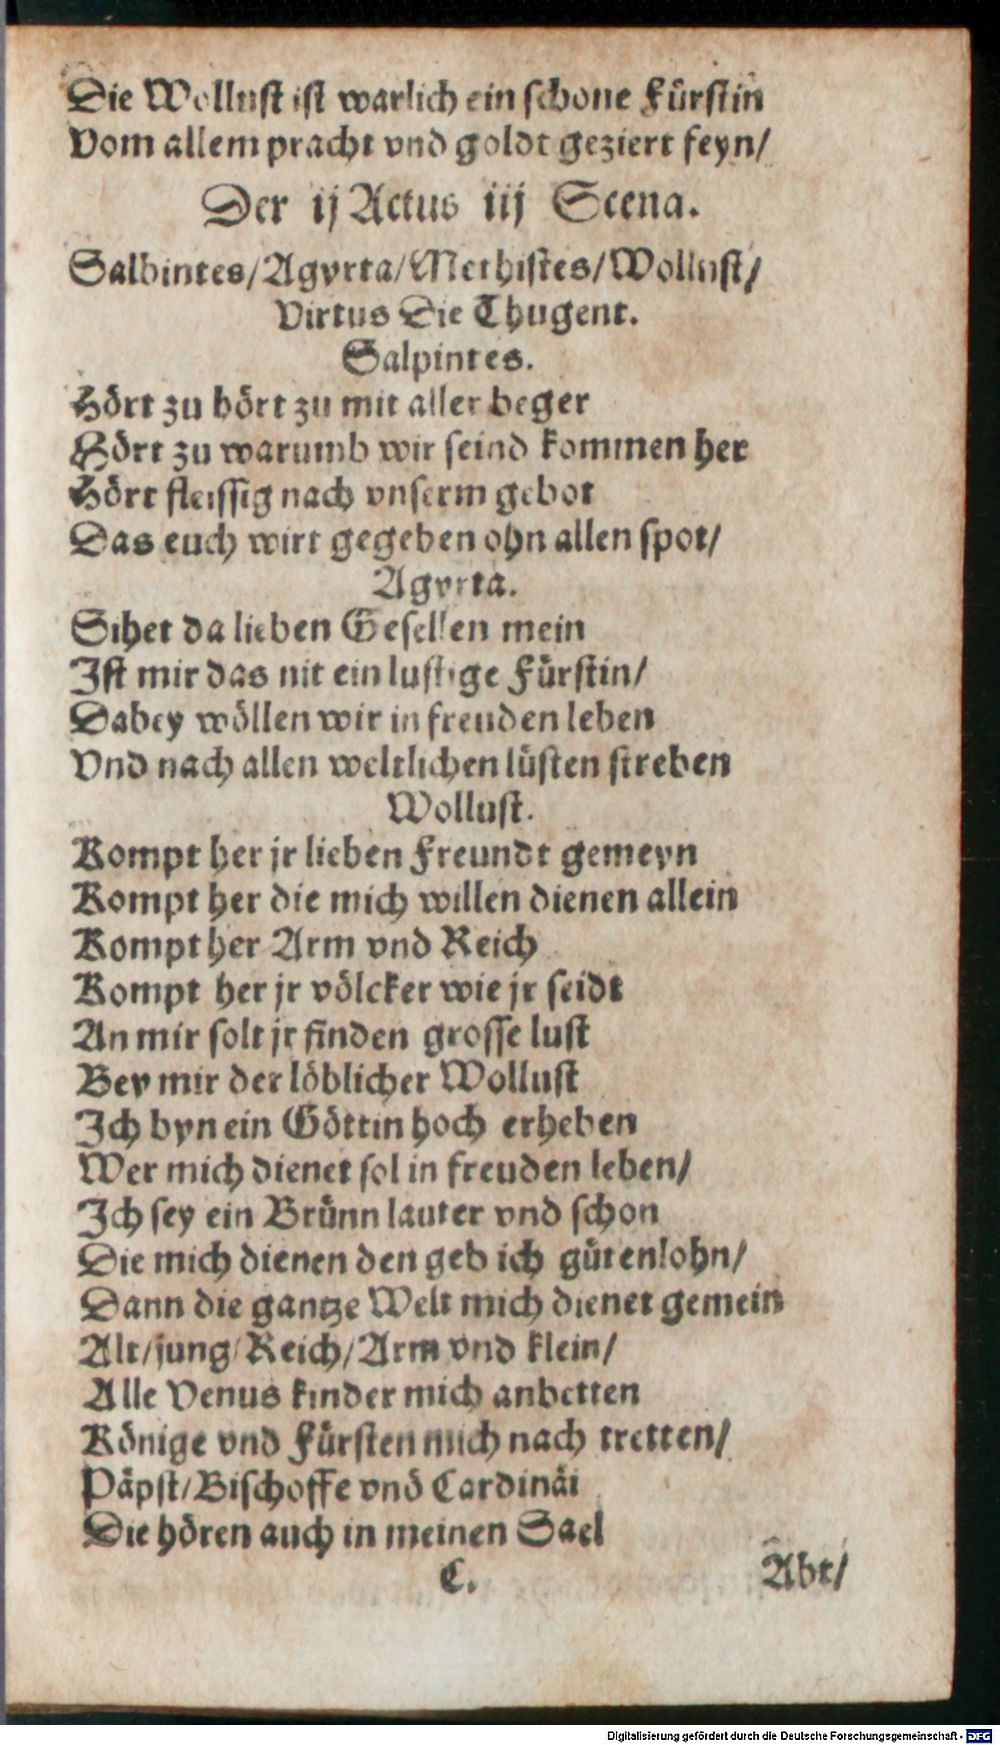 Die Wollust ist warlich ein schone Fürstin
Vom allem pracht vnd goldt geziert feyn/
Der ij Actus iij Scena.
Salbintes/Agyrta/Methistes/Wollust/
Virtus Die Thugent.
Salpintes.
Hört zu hört zu mit aller beger
Hört zu warumb wir seind kommen her
Hört fleissig nach vnserm gebot
Das euch wirt gegeben ohn allen spot/
Agyrta.
Sihet da lieben Gesellen mein
Ist mir das nit ein lustige Fürstin/
Dabey wöllen wir in freuden leben
Vnd nach allen weltlichen lüsten streben
Wollust.
Kompt her jr lieben Freundt gemeyn
Kompt her die mich willen dienen allein
Kompt her Arm vnd Reich
Kompt her jr völcker wie jr seidt
An mir solt jr finden grosse lust
Bey mir der löblicher Wollust
Ich byn ein Göttin hoch erheben
Wer mich dienet sol in freuden leben/
Ich sey ein Brünn lauter vnd schon
Die mich dienen den geb ich gütenlohn/
Dann die gantze Welt mich dienet gemein
Alt/jung/Reich/Arm vnd klein/
Alle Venus kinder mich anbetten
Könige vnd Fürsten mich nach tretten/
Päpst/Bischoffe vnd Cardinäl
Die hören auch in meinen Sael
C.
Abt/
Digitalisierung gefördert durch die Deutsche Forschungsgemeinschaft - DFG